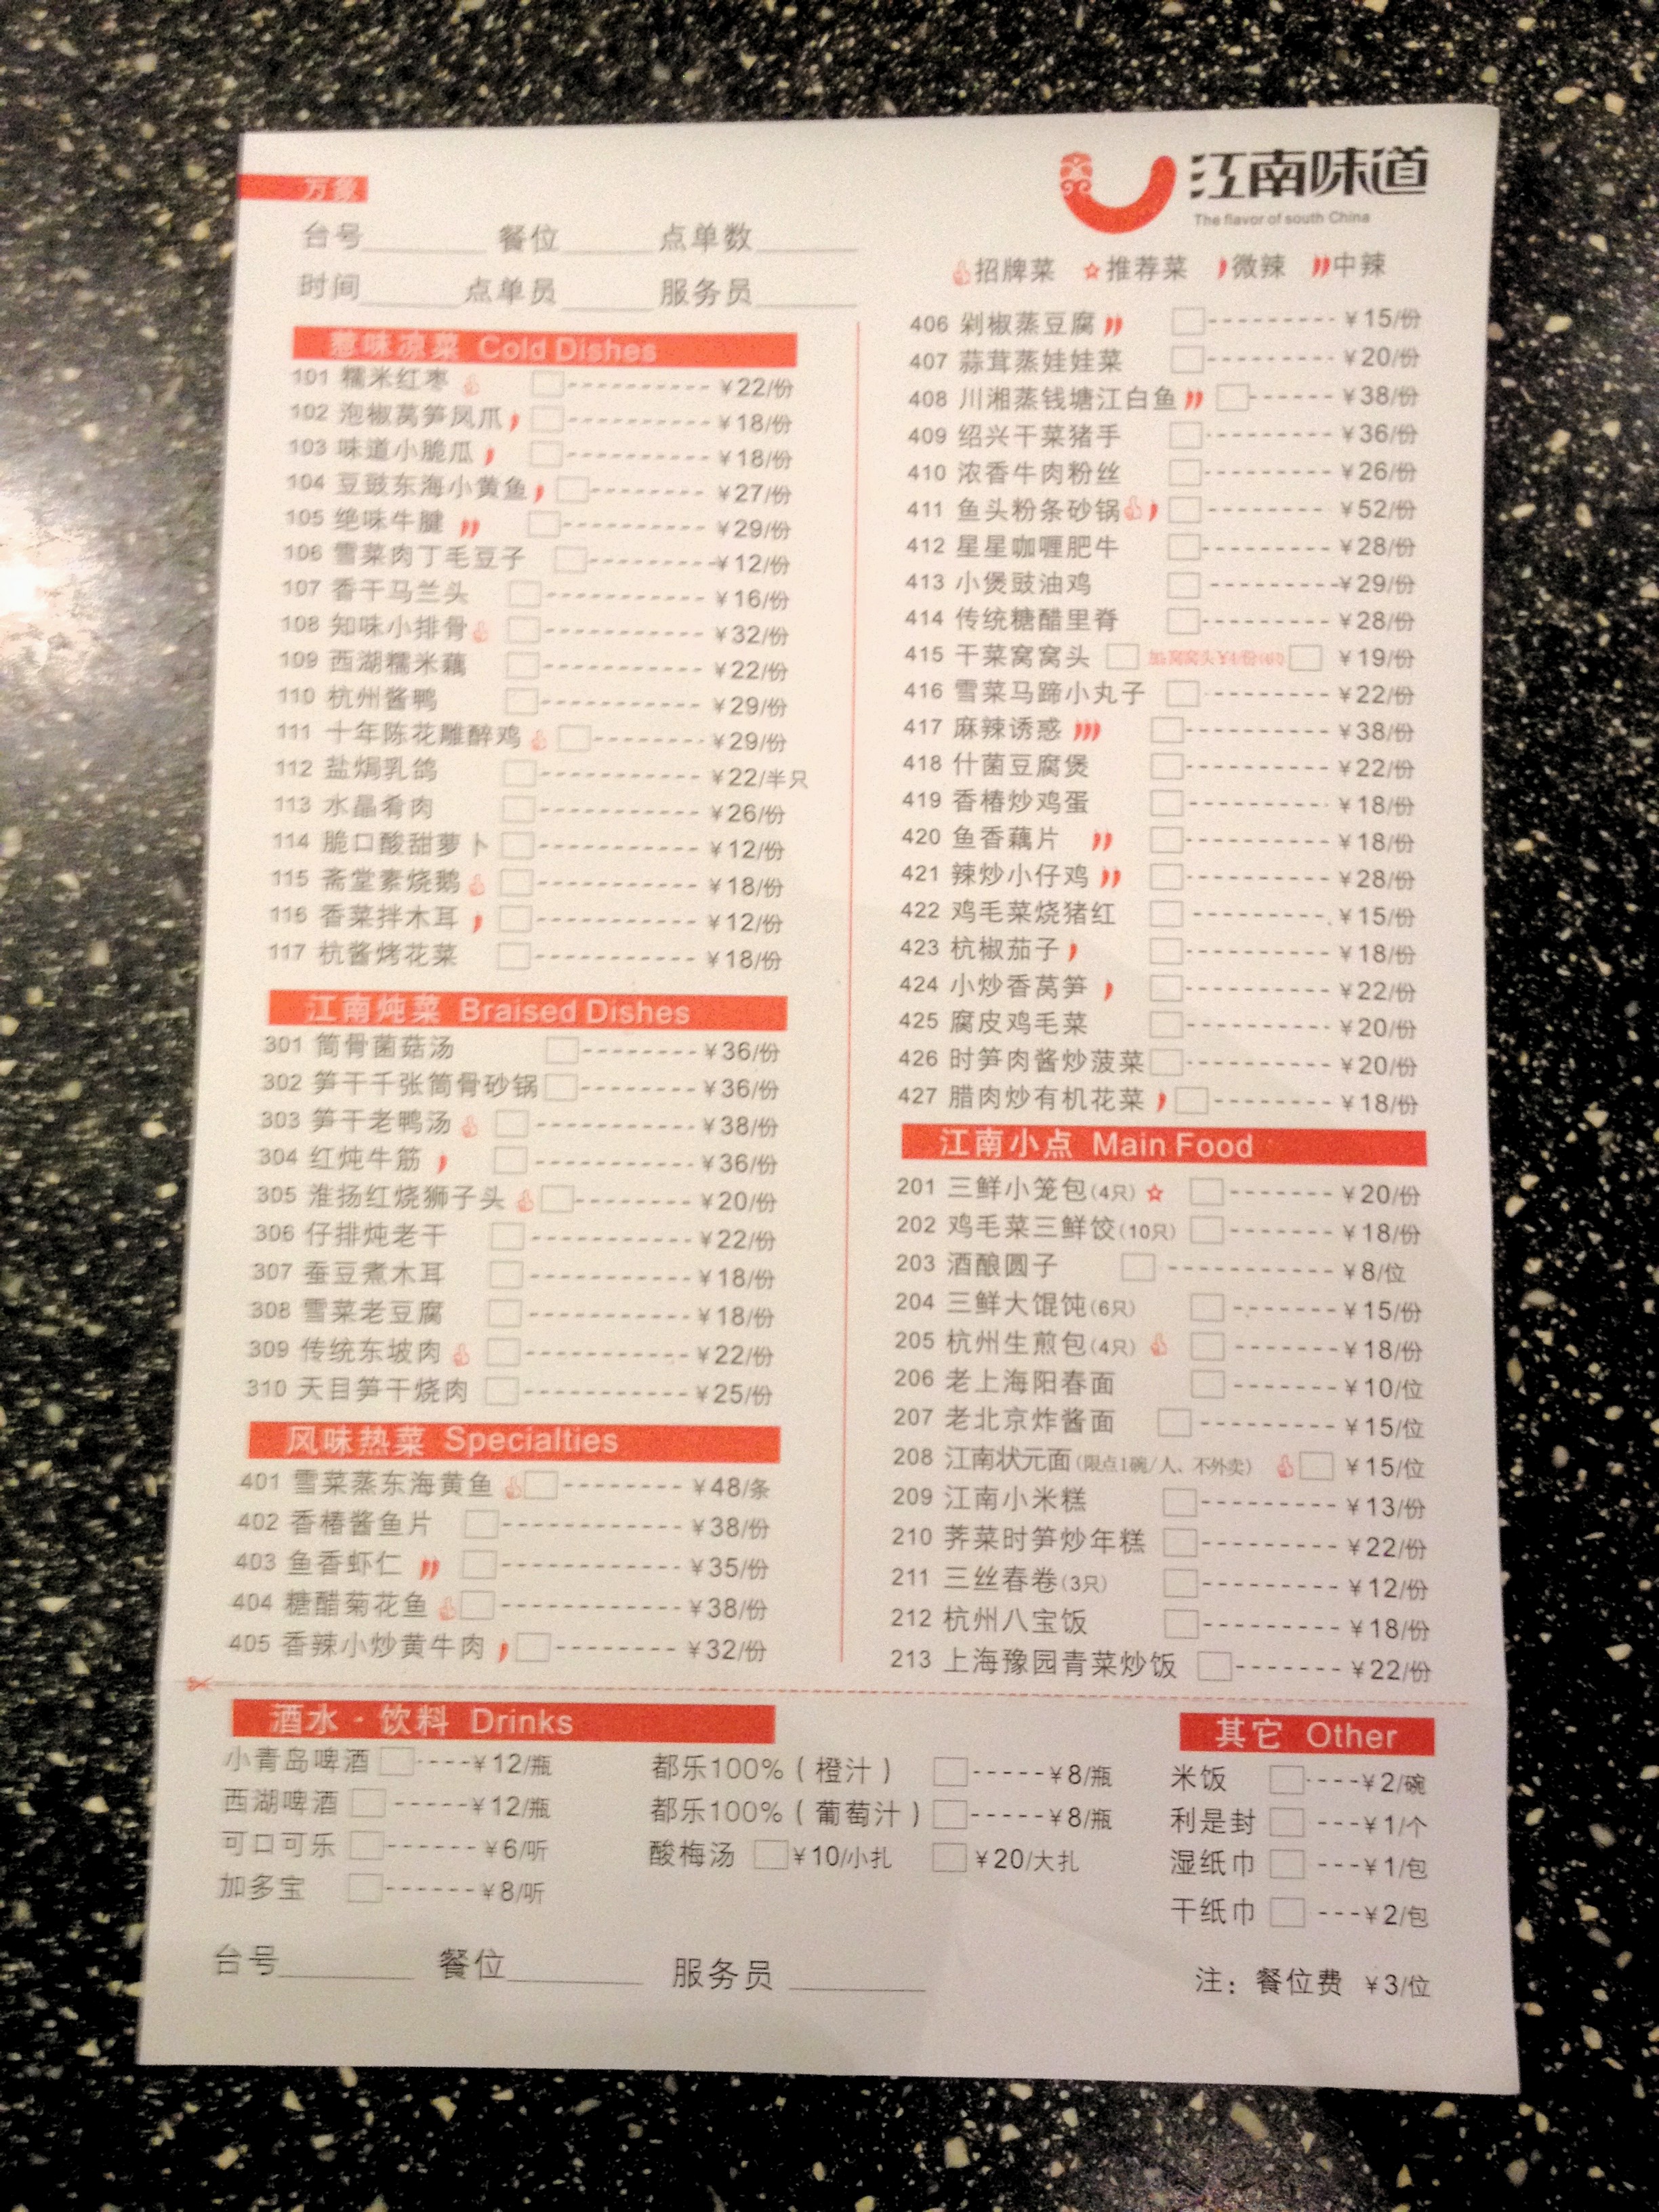 万象
江南味道
The flavor of south China
台号 餐位 点单数
时间 点单员 服务员
招牌菜 推荐菜 微辣 中辣
惹味凉菜 Cold Dishes
101 糯米红枣 ¥22/份
102 泡椒莴笋凤爪 ¥18/份
103 味道小脆瓜 ¥18/份
104 豆豉东海小黄鱼 ¥27/份
105 绝味牛腱 ¥29/份
106 雪菜肉丁毛豆子 ¥12/份
107 香干马兰头 ¥16/份
108 知味小排骨 ¥32/份
109 西湖糯米藕 ¥22/份
110 杭州酱鸭 ¥29/份
111 十年陈花雕醉鸡 ¥29/份
112 盐焗乳鸽 ¥22/半只
113 水晶肴肉 ¥26/份
114 脆口酸甜萝卜 ¥12/份
115 斋堂素烧鹅 ¥18/份
116 香菜拌木耳 ¥12/份
117 杭酱烤花菜 ¥18/份
江南炖菜 Braised Dishes
301 筒骨菌菇汤 ¥36/份
302 笋干千张筒骨砂锅 ¥36/份
303 笋干老鸭汤 ¥38/份
304 红炖牛筋 ¥36/份
305 淮扬红烧狮子头 ¥20/份
306 仔排炖老干 ¥22/份
307 蚕豆煮木耳 ¥18/份
308 雪菜老豆腐 ¥18/份
309 传统东坡肉 ¥22/份
310 天目笋干烧肉 ¥25/份
风味热菜 Specialties
401 雪菜蒸东海黄鱼 ¥48/条
402 香椿酱鱼片 ¥38/份
403 鱼香虾仁 ¥35/份
404 糖醋菊花鱼 ¥38/份
405 香辣小炒黄牛肉 ¥32/份
406 剁椒蒸豆腐 ¥15/份
407 蒜茸蒸娃娃菜 ¥20/份
408 川湘蒸钱塘江白鱼 ¥38/份
409 绍兴干菜猪手 ¥36/份
410 浓香牛肉粉丝 ¥26/份
411 鱼头粉条砂锅 ¥52/份
412 星星咖喱肥牛 ¥28/份
413 小煲豉油鸡 ¥29/份
414 传统糖醋里脊 ¥28/份
415 干菜窝窝头 加:窝窝头¥4/份(4只) ¥19/份
416 雪菜马蹄小丸子 ¥22/份
417 麻辣诱惑 ¥38/份
418 什菌豆腐煲 ¥22/份
419 香椿炒鸡蛋 ¥18/份
420 鱼香藕片 ¥18/份
421 辣炒小仔鸡 ¥28/份
422 鸡毛菜烧猪红 ¥15/份
423 杭椒茄子 ¥18/份
424 小炒香莴笋 ¥22/份
425 腐皮鸡毛菜 ¥20/份
426 时笋肉酱炒菠菜 ¥20/份
427 腊肉炒有机花菜 ¥18/份
江南小点 Main Food
201 三鲜小笼包(4只) ¥20/份
202 鸡毛菜三鲜饺(10只) ¥18/份
203 酒酿圆子 ¥8/位
204 三鲜大馄饨(6只) ¥15/份
205 杭州生煎包(4只) ¥18/份
206 老上海阳春面 ¥10/位
207 老北京炸酱面 ¥15/位
208 江南状元面(限点1碗/人、不外卖) ¥15/位
209 江南小米糕 ¥13/份
210 荠菜时笋炒年糕 ¥22/份
211 三丝春卷(3只) ¥12/份
212 杭州八宝饭 ¥18/份
213 上海豫园青菜炒饭 ¥22/份
酒水·饮料 Drinks
小青岛啤酒 ¥12/瓶
西湖啤酒 ¥12/瓶
可口可乐 ¥6/听
加多宝 ¥8/听
都乐100%(橙汁) ¥8/瓶
都乐100%(葡萄汁) ¥8/瓶
酸梅汤 ¥10/小扎 ¥20/大扎
其它 Other
米饭 ¥2/碗
利是封 ¥1/个
湿纸巾 ¥1/包
干纸巾 ¥2/包
台号 餐位 服务员
注：餐位费 ¥3/位